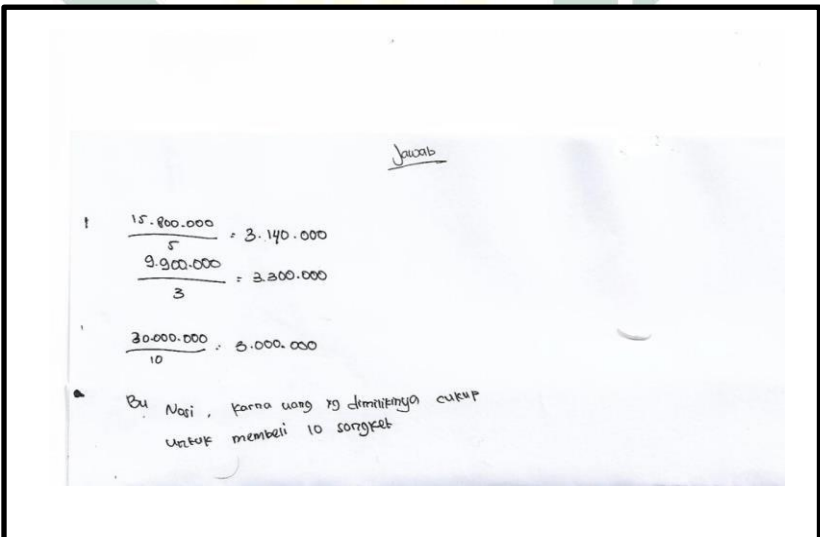 Jawab
1 15.800.000 / 5 = 3.140.000
9.900.000 / 3 = 3.300.000
30.000.000 / 10 = 3.000.000
Bu Nasi, karna uang yg dimilikinya cukup
untuk membeli 10 songket